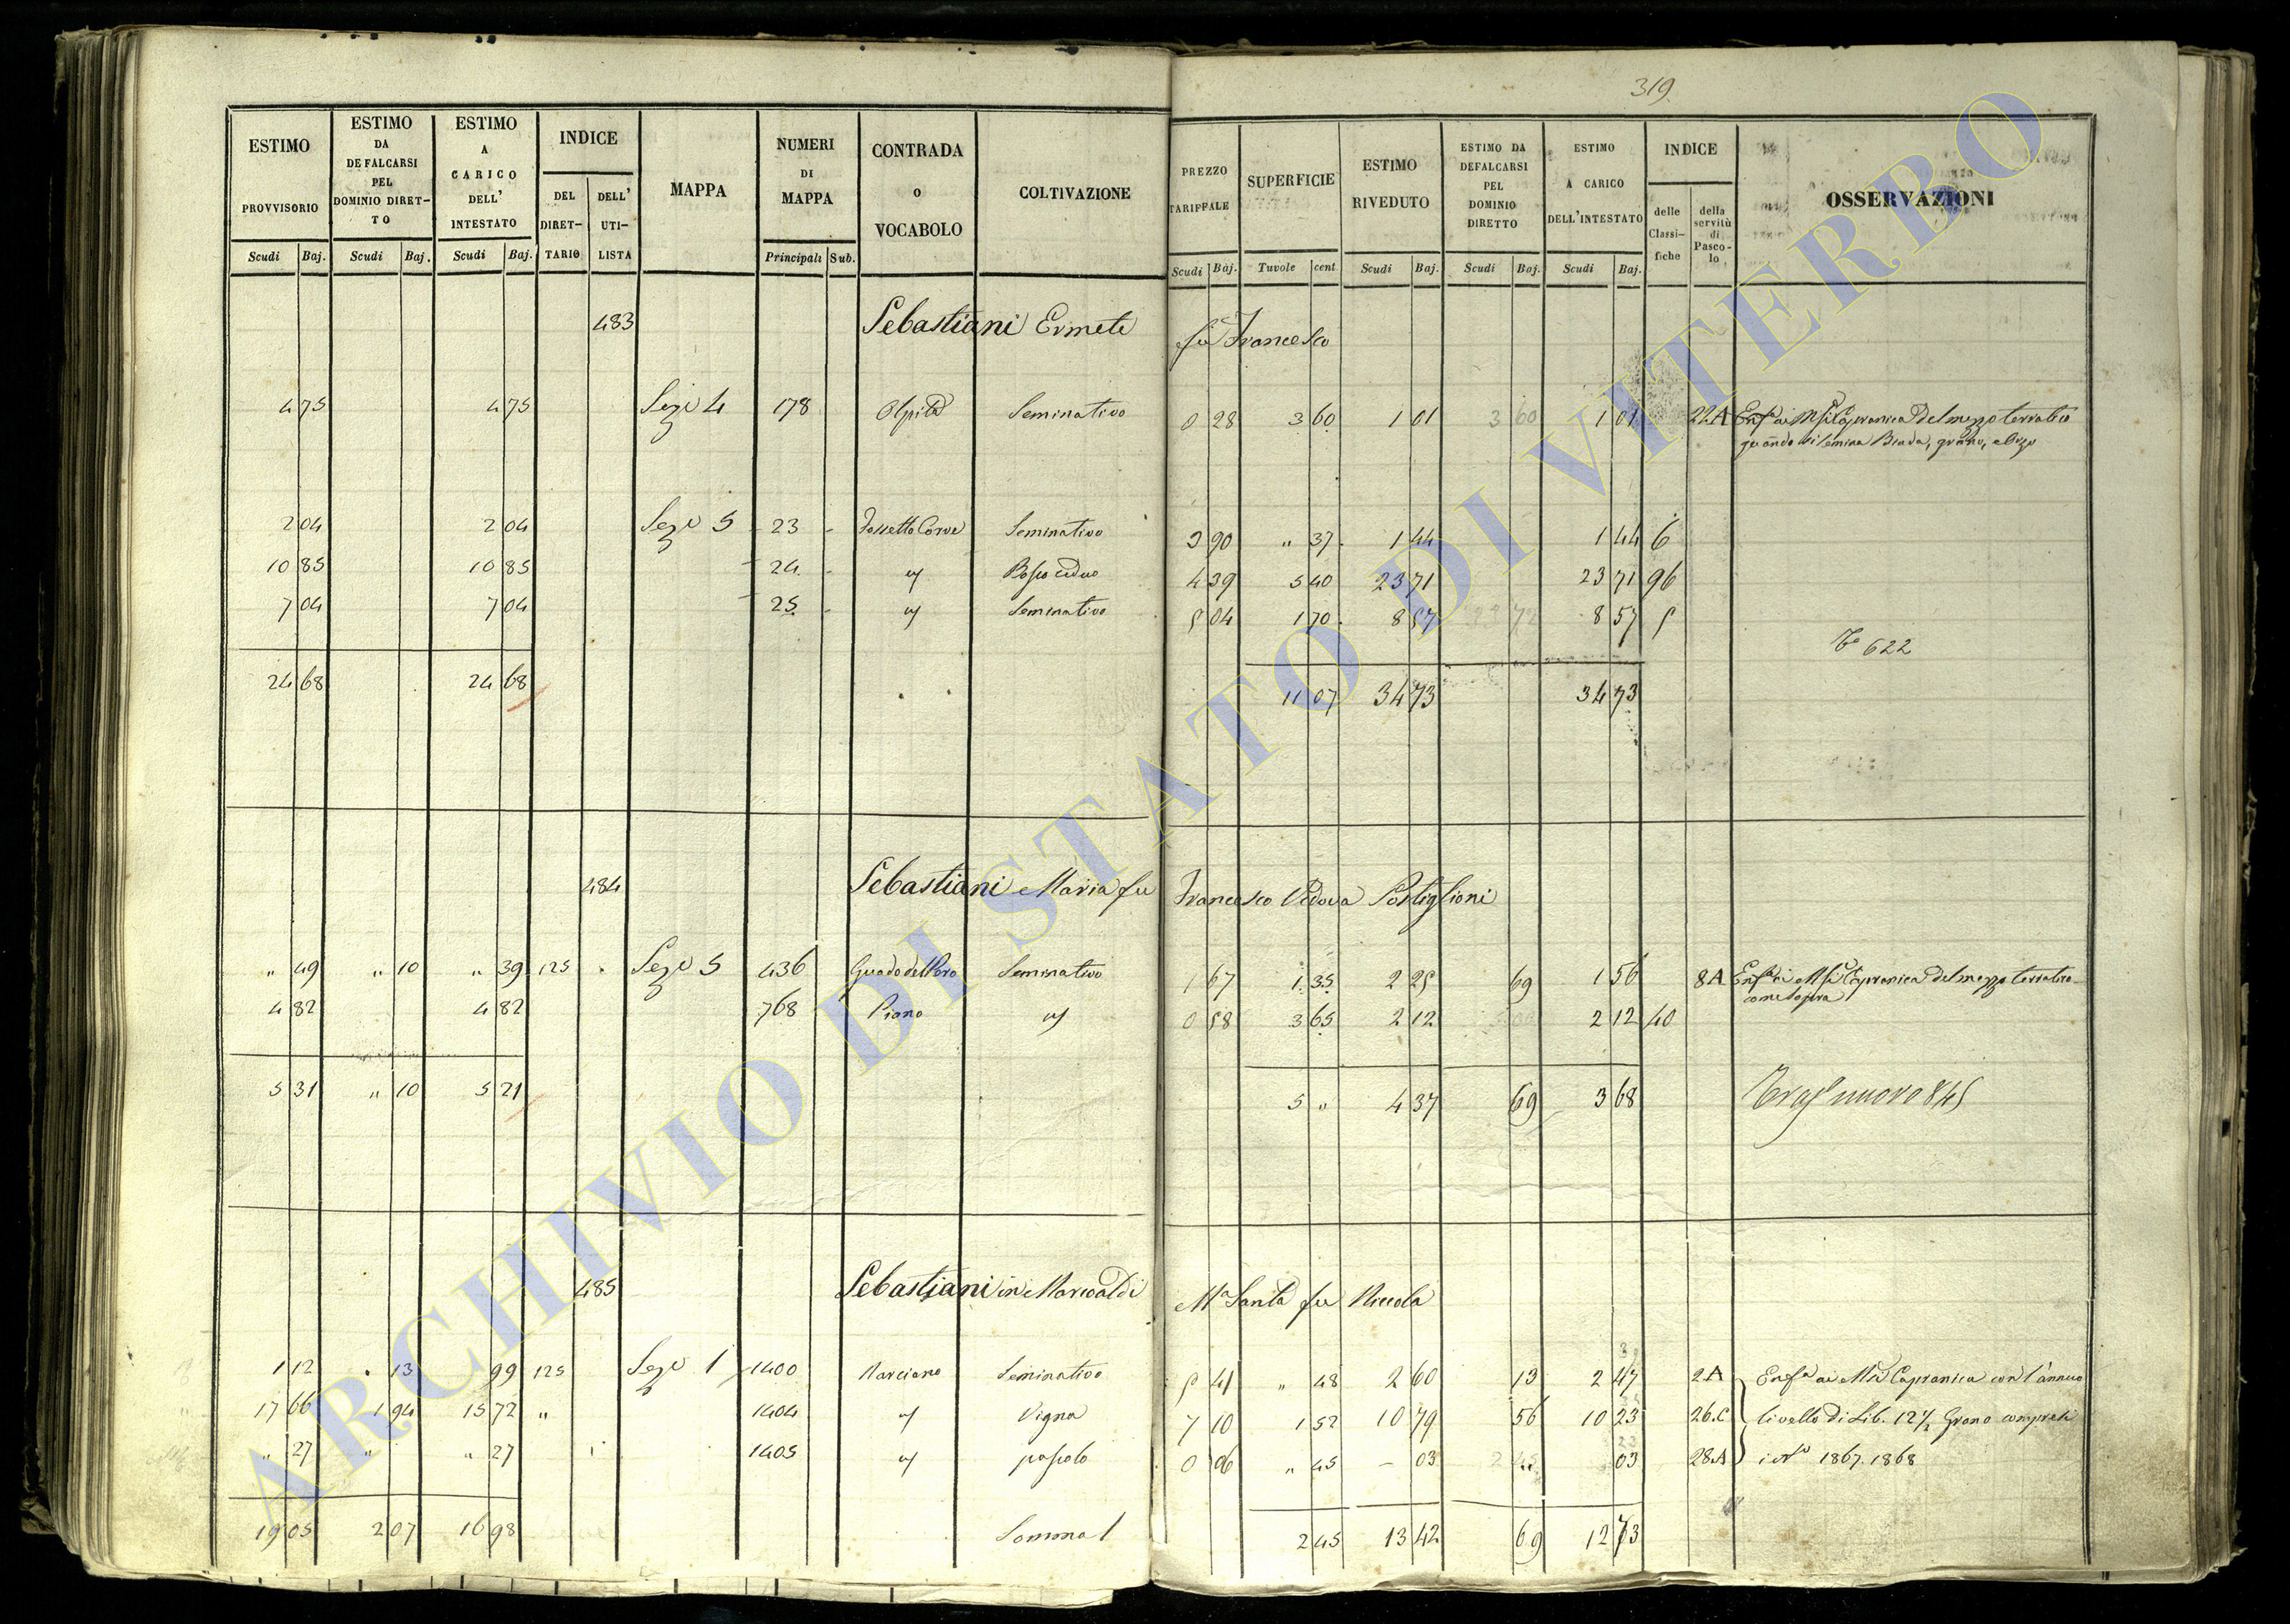 319
ESTIMO PROVVISORIO
ESTIMO DA DEFALCARSI PEL DOMINIO DIRETTO
ESTIMO A CARICO DELL' INTESTATO
INDICE
DEL DIRETTARIO
DELL' UTILISTA
MAPPA
NUMERI DI MAPPA
CONTRADA o VOCABOLO
COLTIVAZIONE
PREZZO TARIFFALE
SUPERFICIE
ESTIMO RIVEDUTO
ESTIMO DA DEFALCARSI PEL DOMINIO DIRETTO
ESTIMO A CARICO DELL'INTESTATO
INDICE
delle Classifiche
della servitù di Pascolo
OSSERVAZIONI
Scudi Baj. Scudi Baj. Scudi Baj. Principali Sub. Scudi Baj. Tavole cent. Scudi Baj. Scudi Baj. Scudi Baj.
483 Sebastiani Ermete fu Francesco
4 75 4 75 Sez. 4 178 Seminativo 0 28 3 60 1 01 3 60 1 01 22A Enf. ai Capranica del mezzo terratico
quando si semina Biada, grano, e
2 04 2 04 Seze 5 23 Fossetto Seminativo 3 90 " 37 1 44 1 44 6
10 85 10 85 24 " Bosco ceduo 4 39 5 40 23 71 23 71 96
7 04 7 04 25 " Seminativo 5 04 1 70 8 57 8 57 5
To 622
24 68 24 68 11 07 34 73 34 73
484 Sebastiani Maria fu Francesco Vedova Postiglioni
" 49 " 10 " 39 125 Seze 5 436 Guado del Seminativo 1 67 1 35 2 25 69 1 56 8A Enf. ai Capranica del mezzo terratico
come sopra
4 82 4 82 768 Piano " 0 58 3 65 2 12 2 12 40
5 31 " 10 5 21 5 " 4 37 69 3 68 Trasp nuovo 845
485 Sebastiani in Marcoaldi Ma Santa fu Niccola
1 12 13 99 125 Seze 1 1400 Marciano Seminativo 5 41 " 48 2 60 13 2 47 2A Enfa ai Capranica con l'annuo
17 66 1 94 15 72 " 1404 " Vigna 7 10 1 52 10 79 56 10 23 26.C livello di Lib. 12 1/2 Grano compresi
" 27 " " 27 1405 " pascolo 0 06 " 45 - 03 " 03 28A i Ni 1867. 1868
19 05 2 07 16 98 Somma 1 2 45 13 42 69 12 73
ARCHIVIO DI STATO DI VITERBO